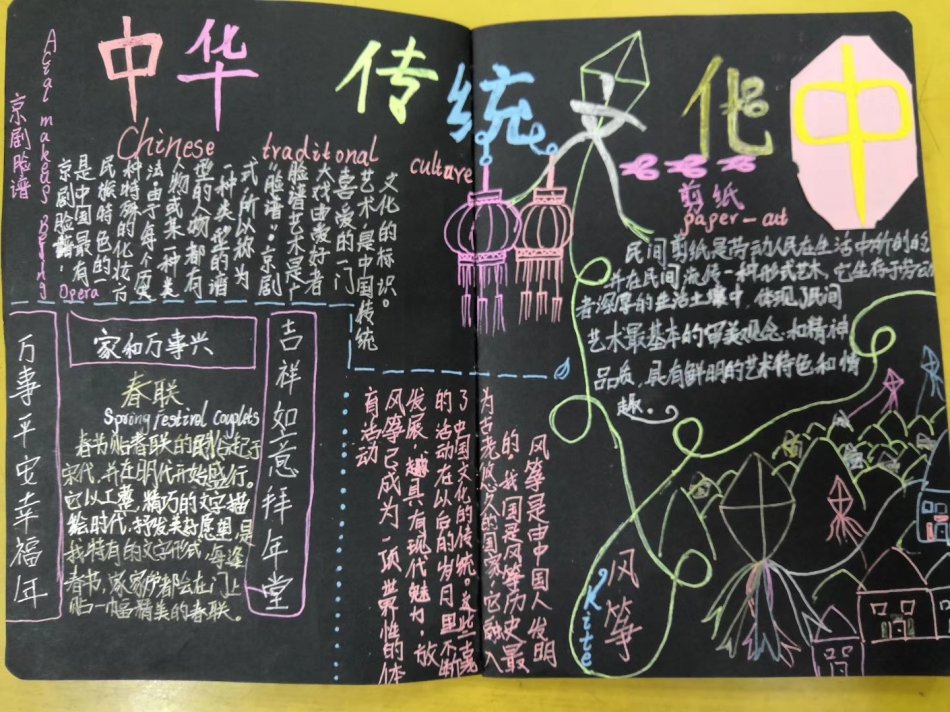 中华 传统文化
Chinese traditonal culture
京剧脸谱
Acial makeups Being
Opera
京剧脸谱!
是中国最有
民族特色的一
种特殊的化妆方
法由于每个历
人物或某一种类
型的人物都有
一种类型的谱
式所以称为
“脸谱”。京剧
脸谱艺术是广
大戏曲爱好者
喜爱的一门
艺术是中国传统
文化的标识。
家和万事兴
万事平安幸福年
吉祥如意拜年堂
春联
Spring festival couplets
春节贴春联的风俗起于
宋代,并在明代开始盛行。
它以工整,精巧的文字描
绘时代,抒发美好愿望,是
我特有的文字形式,每逢
春书,家家户都会在门上
贴一幅精美的春联。
中
剪纸
paper-cut
民间剪纸是劳动人民在生活中创的艺
并在民间流传一种形式艺术,它生存于劳动
者深厚的生活土壤中,体现了民间
艺术最基本的审美观念和精神
品质,具有鲜明的艺术特色和情
趣。
风筝
Kite
风筝是由中国人发明
的,我国是风筝历史最
为古老悠久的国家,它融入
了中国文化的传统。这些
的活动在以后的岁月里不断
发展,越具有现代魅力,放
风筝已成为一项世界性的体
育活动